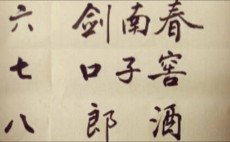 春窖酒
南子
剑口郎
六七八